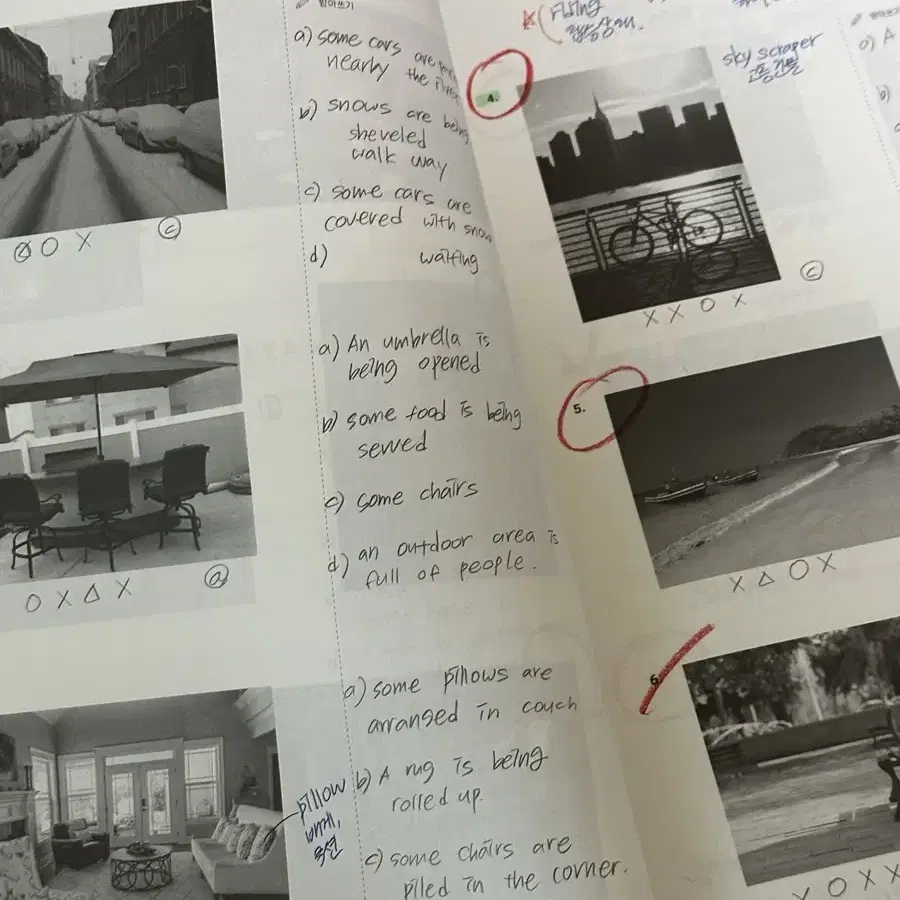 받아쓰기
a) some cars are
nearly the river
b) snows are being
sheveled
walk way
c) some cars are
covered with snow
d) waiting
O X
ⓒ
a) An umbrella is
being opened
b) some food is being
served
c) some chairs
d) an outdoor area is
full of people.
O X △ X
ⓐ
a) some pillows are
arranged in couch
b) A rug is being
rolled up.
c) some chairs are
piled in the corner.
pillow
베개,
4.
sky scraper
고층건물
X X O X
ⓒ
5.
X △ O X
6.
X O X X
a) A
b)